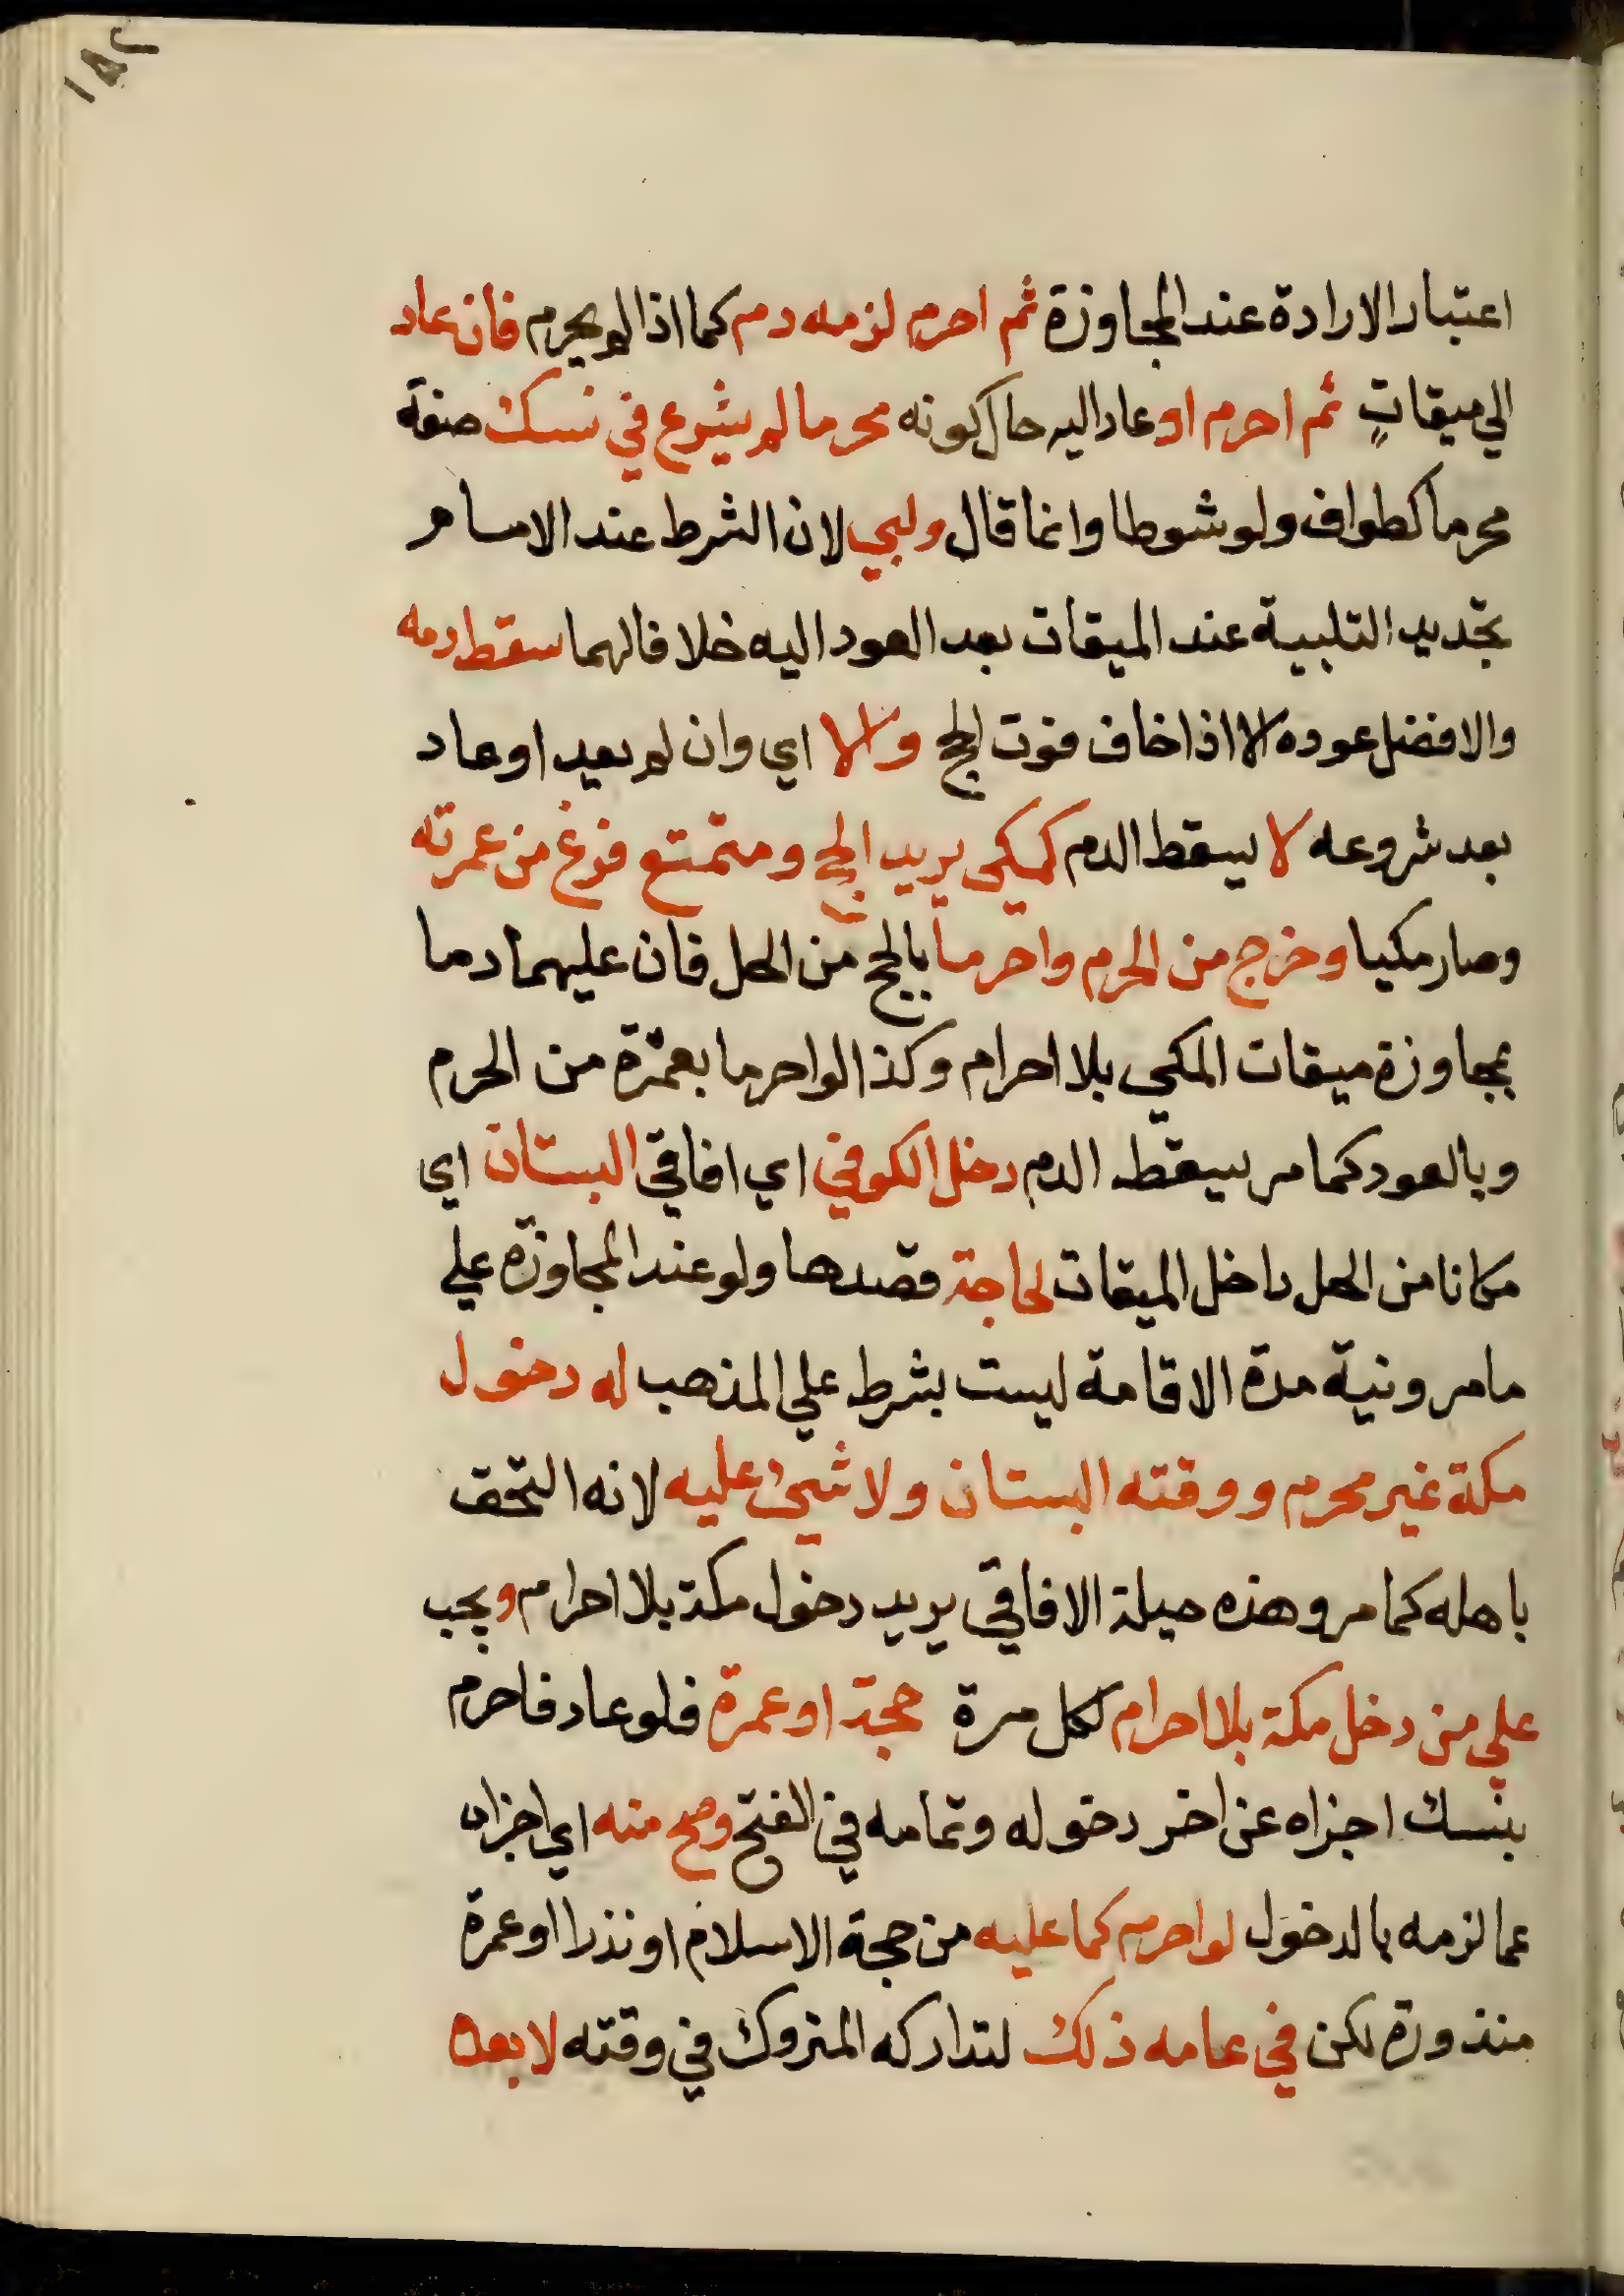 ١٨٢
اعتبار الارادة عند المجاوزة ثم احرم لزمه دم كما اذا لم يحرم فان عاد
الي ميقات ثم احرم او عاد اليه حال كونه محرما لم يشرع في نسك صفة
محرما كطواف ولو شوطا وانما قال ولبي لان الشرط عند الامام
تجديد التلبية عند الميقات بعد العود اليه خلافا لهما سقط دمه
والافضل عوده الا اذا خاف فوت الحج والا اي وان لم يعد او عاد
بعد شروعه لا يسقط الدم كمكي يريد الحج ومتمتع فرغ من عمرته
وصار مكيا وخرج من الحرم واحرما بالحج من الحل فان عليهما دما
بمجاوزة ميقات المكي بلا احرام وكذا لو احرما بعمرة من الحرم
وبالعود كما مر يسقط الدم دخل الكوفي اي افاقي البستان اي
مكانا من الحل داخل الميقات لحاجة قصدها ولو عند المجاوزة علي
ما مر ونية مدة الاقامة ليست بشرط علي المذهب له دخول
مكة غير محرم ووقته البستان ولا شيئ عليه لانه التحق
باهله كما مر وهذه حيلة الافاقي يريد دخول مكة بلا احرام ويجب
علي من دخل مكة بلا احرام لكل مرة حجة او عمرة فلو عاد فاحرم
بنسك اجزاه عن اخر دخوله وتمامه في الفتح وصح منه اي اجزاه
عما لزمه بالدخول لو احرم كما عليه من حجة الاسلام او نذرا او عمرة
منذورة لكن في عامه ذلك لتداركه المتروك في وقته لا بعده